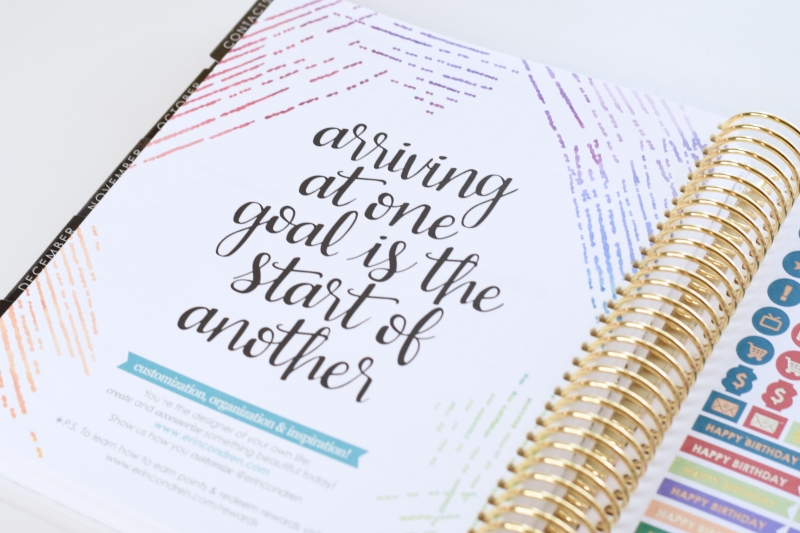 CONTACTS
OCTOBER
NOVEMBER
DECEMBER
arriving
at one
goal is the
start of
another
customization, organization & inspiration!
You're the designer of your own life:
create and accessorize something beautiful today!
www.erincondren.com
Show us how you customize @erincondren
*P.S. To learn how to earn points & redeem rewards
www.erincondren.com/rewards
HAPPY BIRTHDAY
HAPPY BIRTHDAY
HAPPY BIRTHDAY
HAPPY BIRTHDAY
HAPPY BIRTHDAY